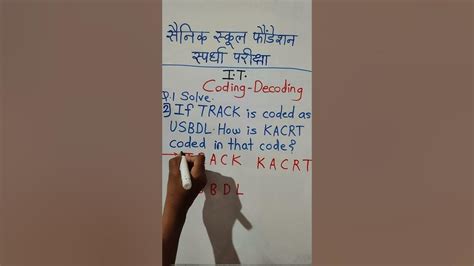 सैनिक स्कूल फौंडेशन
स्पर्धा परीक्षा
I.T.
Coding-Decoding
Q.1 Solve.
2) If TRACK is coded as
USBDL. How is KACRT
coded in that code?
RACK KACRT
BDL